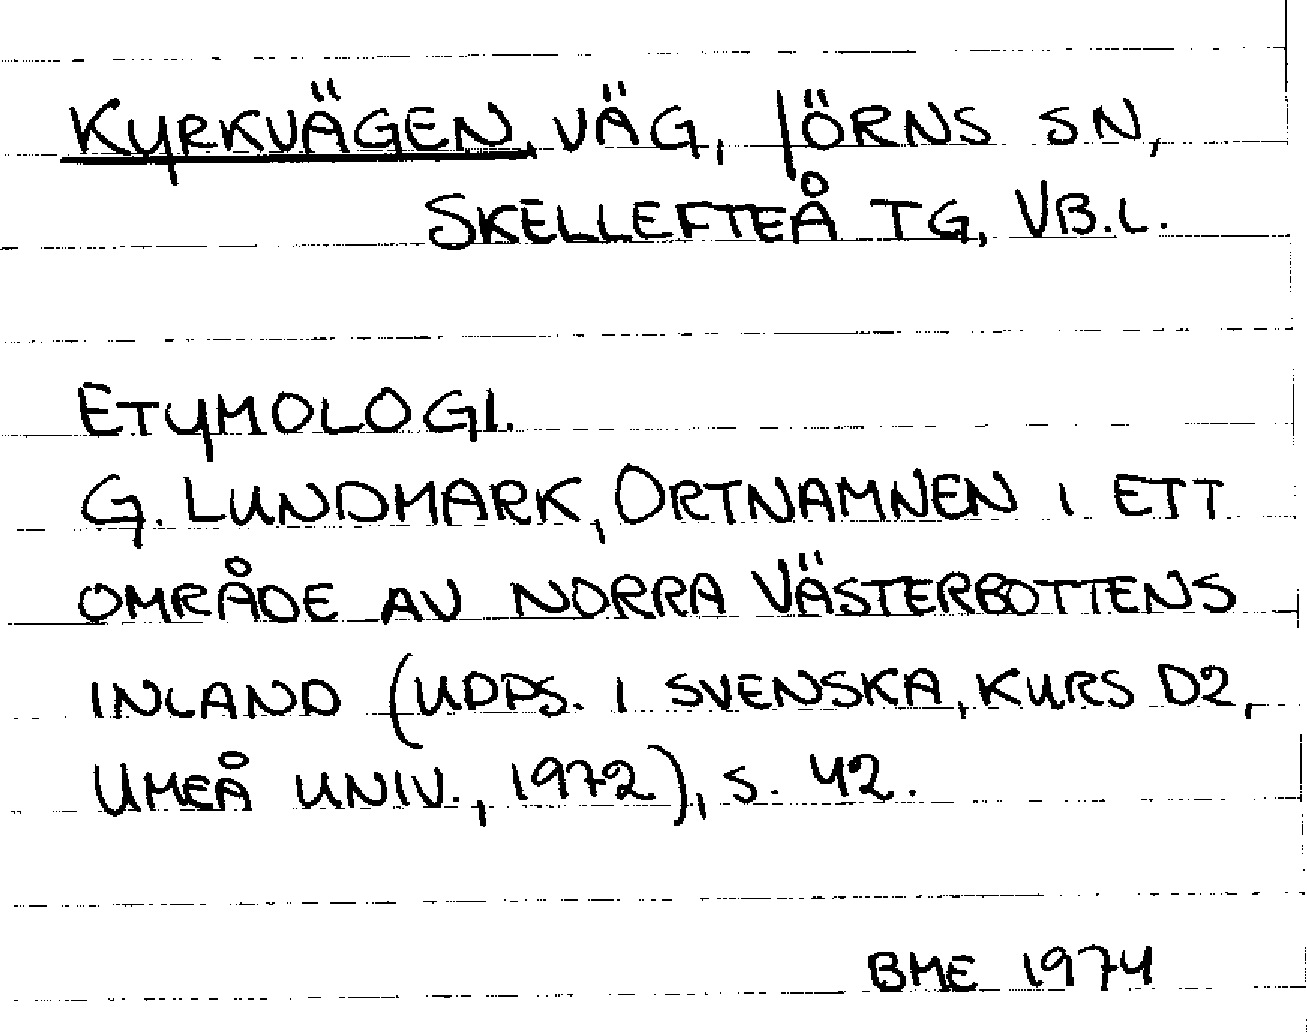 KYRKVÄGEN, VÄG, JÖRNS SN,
SKELLEFTEÅ TG, VB.L.
ETYMOLOGI.
G. LUNDMARK, ORTNAMNEN I ETT
OMRÅDE AV NORRA VÄSTERBOTTENS
INLAND (UPPS. I SVENSKA, KURS D2,
UMEÅ UNIV., 1972), S. 42.
BME 1974